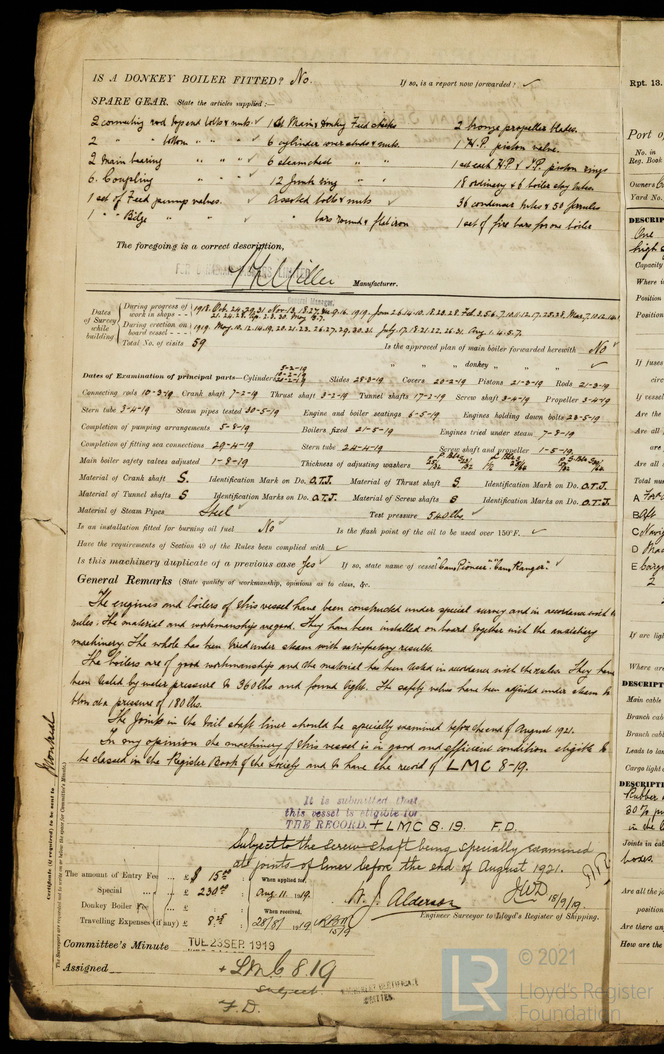 IS A DONKEY BOILER FITTED? No. If so, is a report now forwarded? ✓
SPARE GEAR. State the articles supplied:—
2 connecting rod top end bolts & nuts ✓ 1 set Main & donkey Feed checks 2 bronze propeller blades.
2 " " bottom " " 6 cylinder cover studs & nuts. 1 H.P. piston valve.
2 main bearing " " ✓ 6 steamchest " " 1 set each H.P & I.P. piston rings
6. Coupling " " ✓ 12 Junk ring " ✓ 18 ordinary & 6 boiler stay tubes
1 set of Feed pump valves. ✓ Assorted bolts & nuts ✓ 36 condenser tubes & 50 ferrules
1 " " Bilge " " ✓ " bars round & flat iron 1 set of fire bars for one boiler
The foregoing is a correct description,
Miller Manufacturer.
General Manager.
Dates of Survey while building
During progress of work in shops - -
During erection on board vessel - - - 1919. May, 10. 12. 14. 19. 20. 21. 23. 26. 27. 29. 30. 31. July. 17. 18. 21. 22. 26. 31. Aug. 1. 4. 5. 7.
Total No. of visits 59 Is the approved plan of main boiler forwarded herewith No ✓
" " " donkey " " " ✓
Dates of Examination of principal parts—Cylinders Slides 25-3-19 Covers 20-2-19 Pistons 21-3-19 Rods 21-3-19
Connecting rods 10-3-19 Crank shaft 7-2-19 Thrust shaft 3-2-19 Tunnel shafts 17-2-19 Screw shaft 3-4-19 Propeller 3-4-19
Stern tube 3-4-19 Steam pipes tested 30-5-19 Engine and boiler seatings 6-5-19 Engines holding down bolts 23-5-19
Completion of pumping arrangements 5-8-19 Boilers fixed 21-5-19 Engines tried under steam 7-8-19
Completion of fitting sea connections 29-4-19 Stern tube 24-4-19 Screw shaft and propeller 1-5-19
Main boiler safety valves adjusted 1-8-19 Thickness of adjusting washers
Material of Crank shaft S. Identification Mark on Do. O.T.J. Material of Thrust shaft S. Identification Mark on Do. O.T.J.
Material of Tunnel shafts S Identification Marks on Do. O.T.J. Material of Screw shafts S Identification Marks on Do. O.T.J.
Material of Steam Pipes Steel ✓ Test pressure 540 lbs ✓
Is an installation fitted for burning oil fuel No ✓ Is the flash point of the oil to be used over 150°F. ✓
Have the requirements of Section 49 of the Rules been complied with ✓
Is this machinery duplicate of a previous case Yes ✓ If so, state name of vessel "Can. Pioneer". "Can. Ranger". ✓
General Remarks (State quality of workmanship, opinions as to class, &c.
The engines and boilers of this vessel have been constructed under special survey and in accordance with the
rules. The material and workmanship are good. They have been installed on board together with the auxiliary
machinery. The whole has been tried under steam with satisfactory results.
The boilers are of good workmanship and the material has been tested in accordance with the rules. They have
been tested by water pressure to 360 lbs and found tight. The safety valves have been adjusted under steam to
blow at a pressure of 180 lbs.
The Joints in the tail shaft liner should be specially examined before the end of August 1921.
In my opinion the machinery of this vessel is in good and efficient condition eligible to
be classed in the Register Book of the Society and to have the record of LMC 8-19.
It is submitted that
this vessel is eligible for
THE RECORD. + LMC 8. 19. F.D.
Subject to the Screw shaft being specially examined
at joints of liner before the end of August 1921.
J.W.D. 18/9/19.
Certificate (if required) to be sent to Montreal
(The Surveyors are requested not to write on or below the space for Committee's Minute.)
The amount of Entry Fee ... $ 15.00 When applied for,
Special ... £ 230.00 Aug. 11 1919.
Donkey Boiler Fee ... £ When received,
Travelling Expenses (if any) £ 28/8/1919
W. J. Alderson
Engineer Surveyor to Lloyd's Register of Shipping.
Committee's Minute TUE. 23 SEP. 1919
Assigned + LMC 8.19
Subject
F.D.
© 2021
LR Lloyd's Register
Foundation
Rpt. 13.
Port of
No. in
Reg. Book
Owners
Yard No.
DESCRIP
One
high
Capacity
Where i
Position
Position
If fuses
circ
If vessel
Are the
Are all
Are all
Total num
A
B Aft
C Navig
D Mac
E Cargo
2
If are ligh
Where are
DESCRIPT
Main cable
Branch cab
Branch cabl
Leads to lam
Cargo light c
DESCRIPTI
Rubber
in the
Joints in cab
boxes.
Are all the jo
position
Are there an
How are the